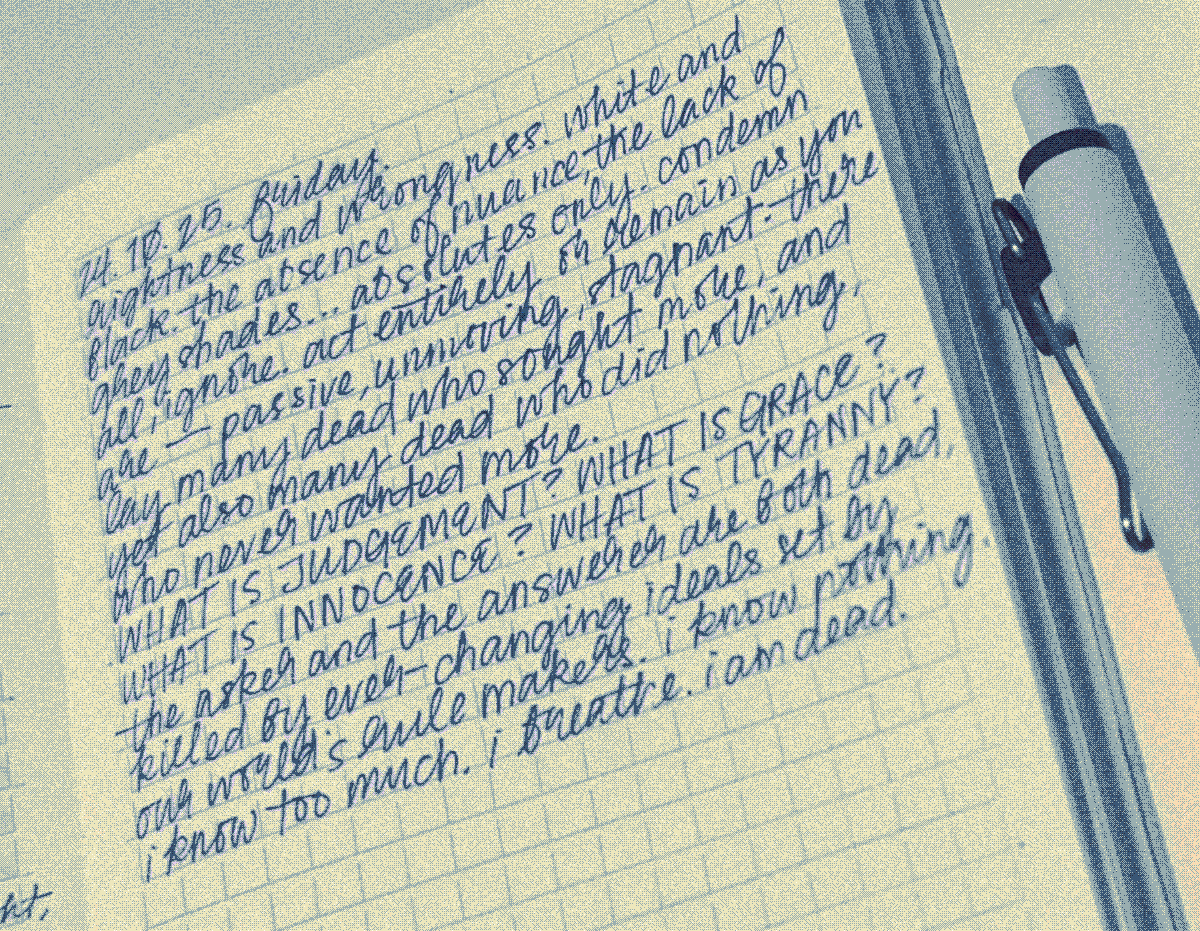 24. 10. 25. friday.
rightness and wrongness. white and
black. the absence of nuance, the lack of
grey shades... absolutes only. condemn
all, ignore. act entirely, or remain as you
are — passive, unmoving, stagnant. there
lay many dead who sought more, and
yet also many dead who did nothing,
who never wanted more.
WHAT IS JUDGEMENT? WHAT IS GRACE?
WHAT IS INNOCENCE? WHAT IS TYRANNY?
the asker and the answerer are both dead,
killed by ever-changing ideals set by
our world's rule makers. i know nothing.
i know too much. i breathe. i am dead.
ht,